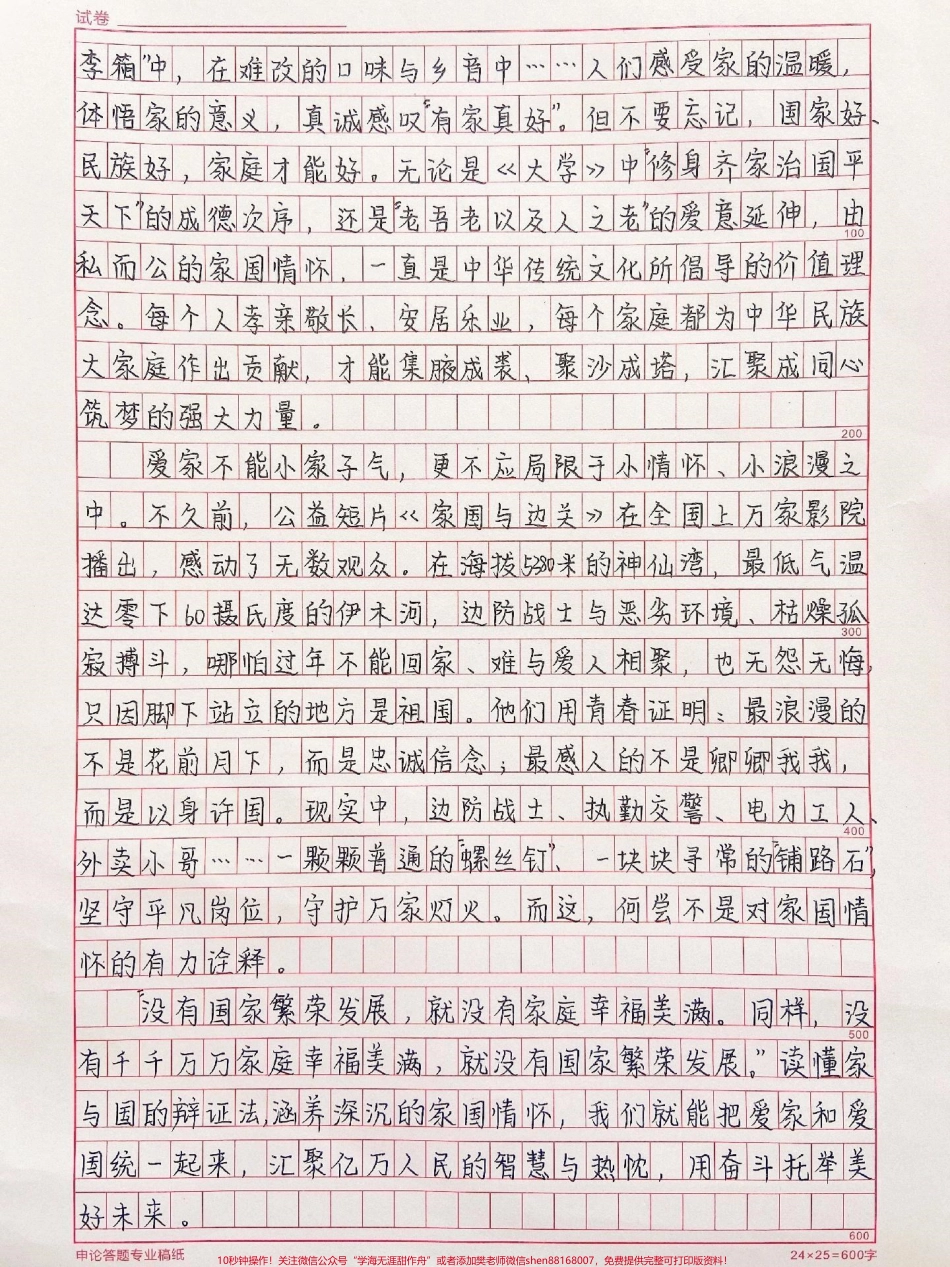 试卷
李箱”中，在难改的口味与乡音中……人们感受家的温暖，
体悟家的意义，真诚感叹“有家真好”。但不要忘记，国家好、
民族好，家庭才能好。无论是《大学》中“修身齐家治国平
天下”的成德次序，还是“老吾老以及人之老”的爱意延伸，由
100
私而公的家国情怀，一直是中华传统文化所倡导的价值理
念。每个人孝亲敬长、安居乐业，每个家庭都为中华民族
大家庭作出贡献，才能集腋成裘、聚沙成塔，汇聚成同心
筑梦的强大力量。
200
爱家不能小家子气，更不应局限于小情怀、小浪漫之
中。不久前，公益短片《家国与边关》在全国上万家影院
播出，感动了无数观众。在海拔5380米的神仙湾，最低气温
达零下60摄氏度的伊木河，边防战士与恶劣环境、枯燥孤
300
寂搏斗，哪怕过年不能回家、难与爱人相聚，也无怨无悔，
只因脚下站立的地方是祖国。他们用青春证明：最浪漫的
不是花前月下，而是忠诚信念；最感人的不是卿卿我我，
而是以身许国。现实中，边防战士、执勤交警、电力工人、
400
外卖小哥……一颗颗普通的“螺丝钉”、一块块寻常的“铺路石”，
坚守平凡岗位，守护万家灯火。而这，何尝不是对家国情
怀的有力诠释。
“没有国家繁荣发展，就没有家庭幸福美满。同样，没
500
有千千万万家庭幸福美满，就没有国家繁荣发展。”读懂家
与国的辩证法，涵养深沉的家国情怀，我们就能把爱家和爱
国统一起来，汇聚亿万人民的智慧与热忱，用奋斗托举美
好未来。
600
申论答题专业稿纸
10秒钟操作！关注微信公众号“学海无涯甜作舟”或者添加樊老师微信shen88168007，免费提供完整可打印版资料！
24×25=600字